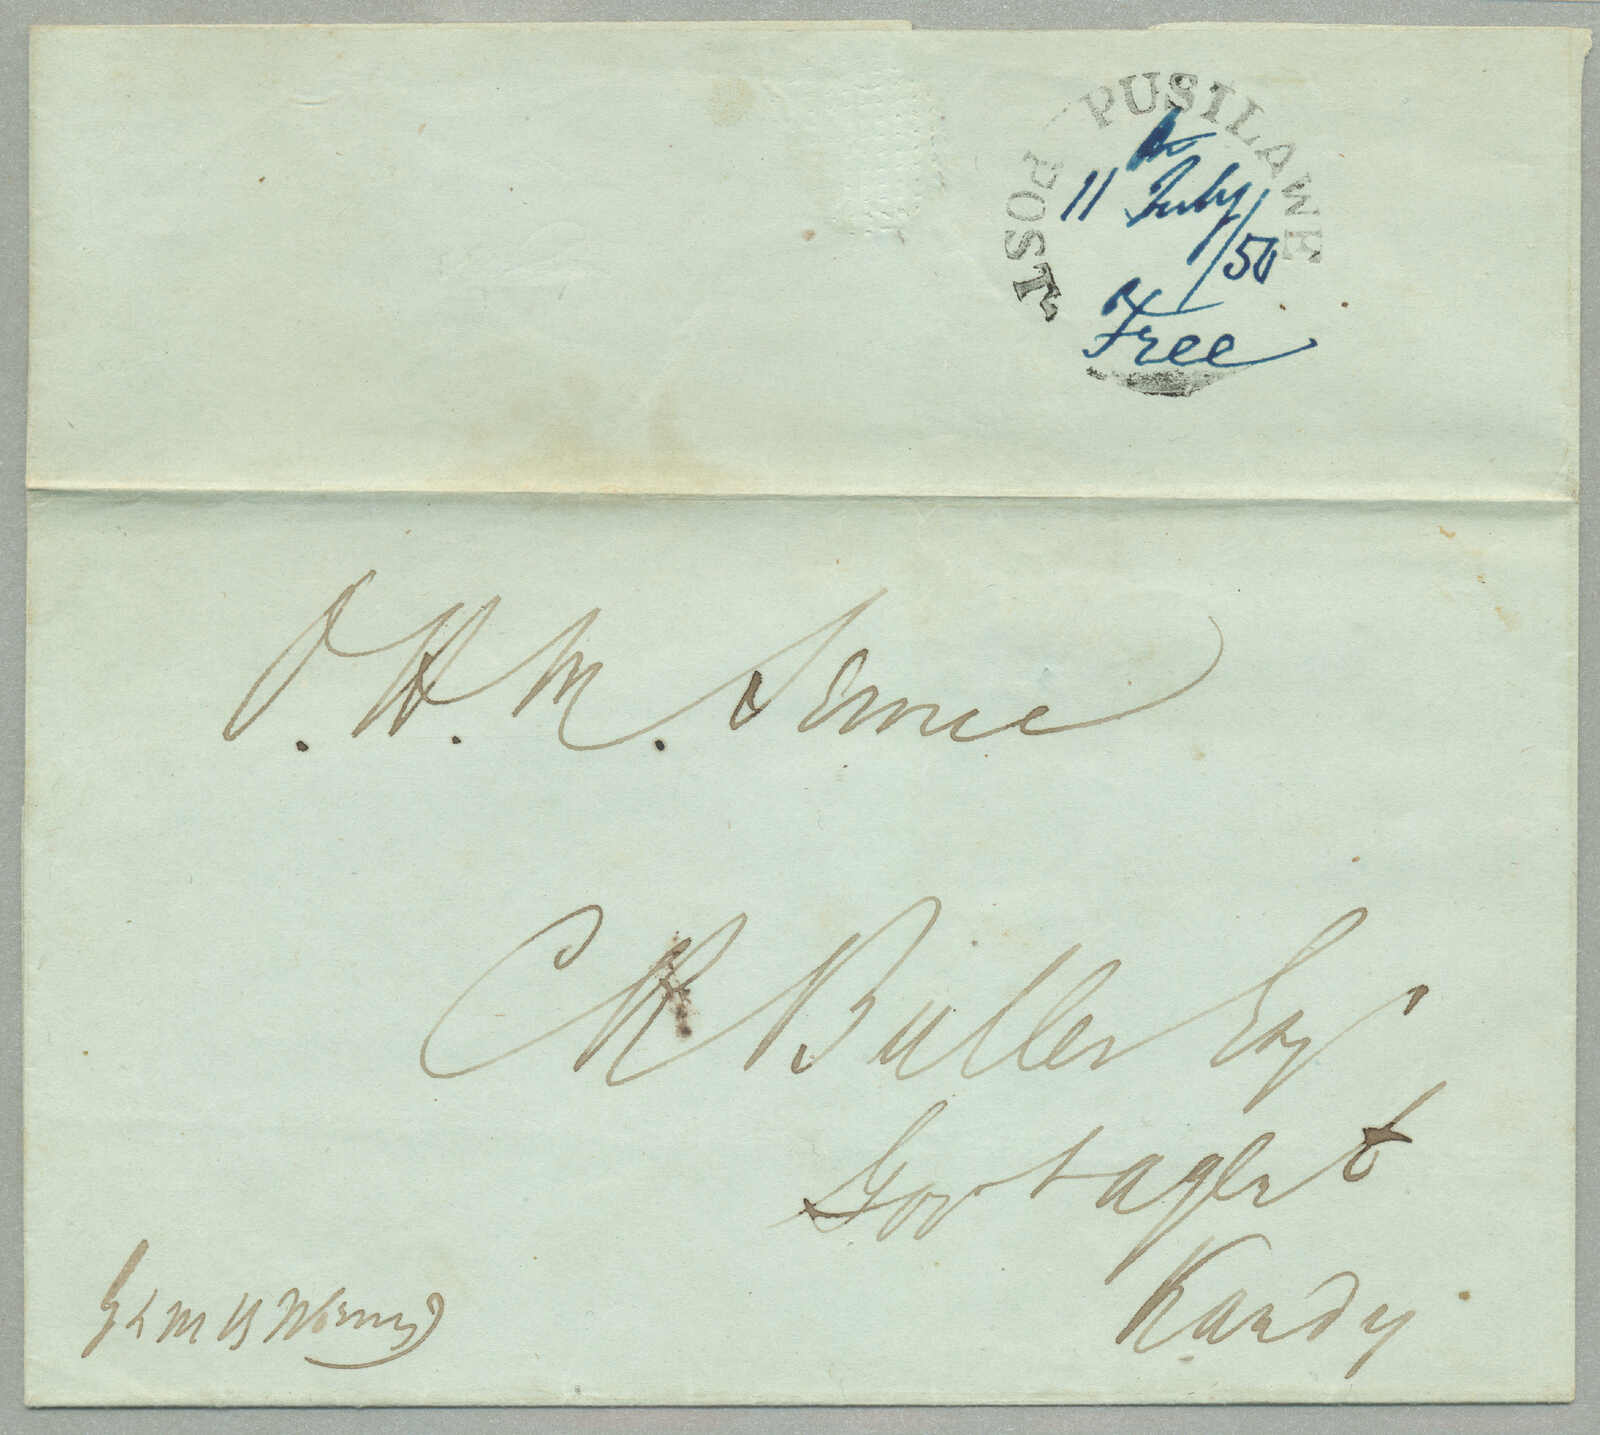 POST PUSILAWE
11 July /50
Free
O. H. M. Service
C R Buller Esqr
Govt agent
Kandy